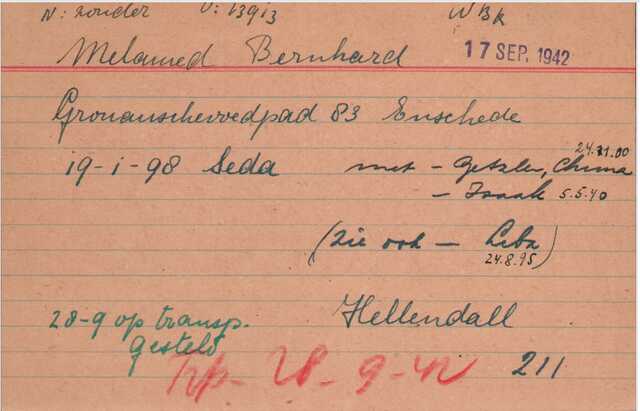 N: zonder U: 13913 WBK
Melamed Bernhard 17 SEP. 1942
Gronauschevoedpad 83 Enschede
24.11.00
19-1-98 Seda met - Getzler, Chuma
- Isaak 5.5.40
(zie ook - Liba)
24.8.95
Hellendall
28-9 op transp.
gesteld
Trp - 28-9-42 211